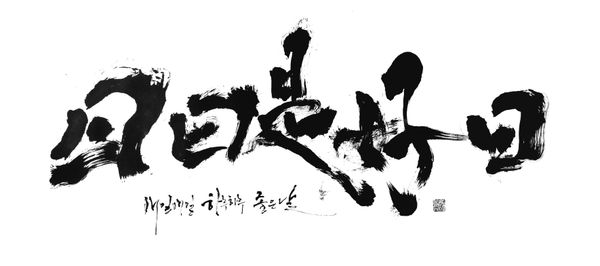 日日是好日
매일매일 하루하루 좋은 날